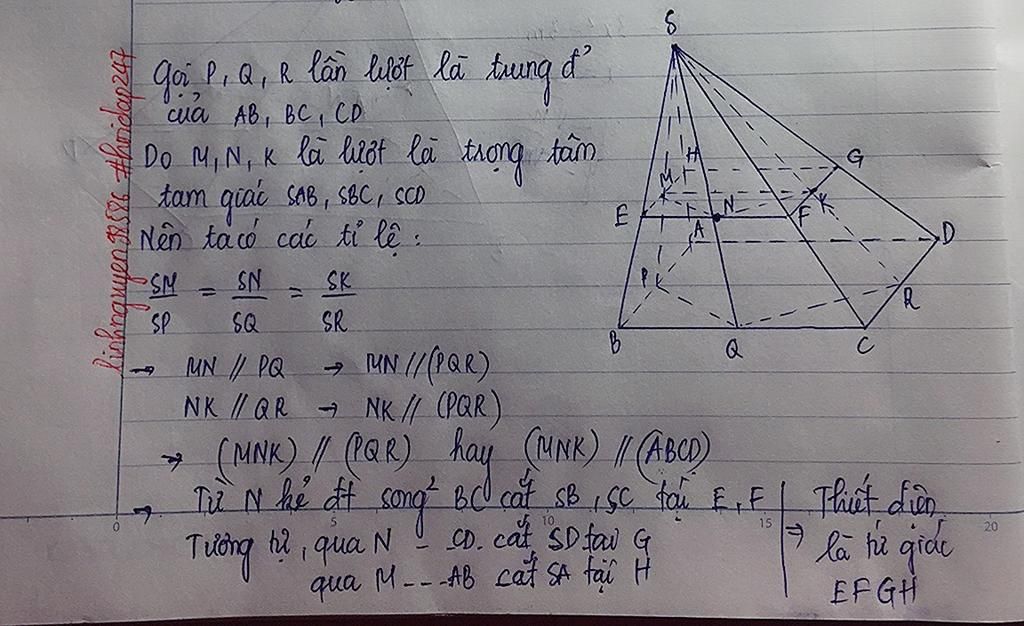 linhnguyen92586 #hoidap247
Gọi P, Q, R lần lượt là trung đ'
của AB, BC, CD
Do M, N, K là lượt là trọng tâm
tam giác SAB, SBC, SCD
Nên ta có các tỉ lệ :
SM/SP = SN/SQ = SK/SR
→ MN // PQ → MN // (PQR)
NK // QR → NK // (PQR)
→ (MNK) // (PQR) hay (MNK) // (ABCD)
→ Từ N kẻ đt song² BC cắt SB, SC tại E, F
Tương tự, qua N - CD. cắt SD tại G
qua M --- AB cắt SA tại H
⇒ Thiết diện
là tứ giác
EFGH
S
H
G
M
E
N
F
K
A
D
P
R
B
Q
C
0
5
10
15
20